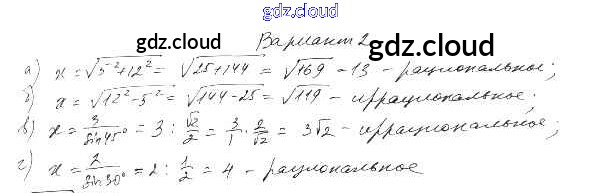 gdz.cloud
gdz.cloud Вариант 2 gdz.cloud
а) x = √5²+12² = √25+144 = √169 - 13 - рациональное;
б) x = √12²-5² = √144-25 = √119 - иррациональное;
в) x = 3/sin45° = 3 : √2/2 = 3/1 · 2/√2 = 3√2 - иррациональное;
г) x = 2/sin30° = 2 : 1/2 = 4 - рациональное